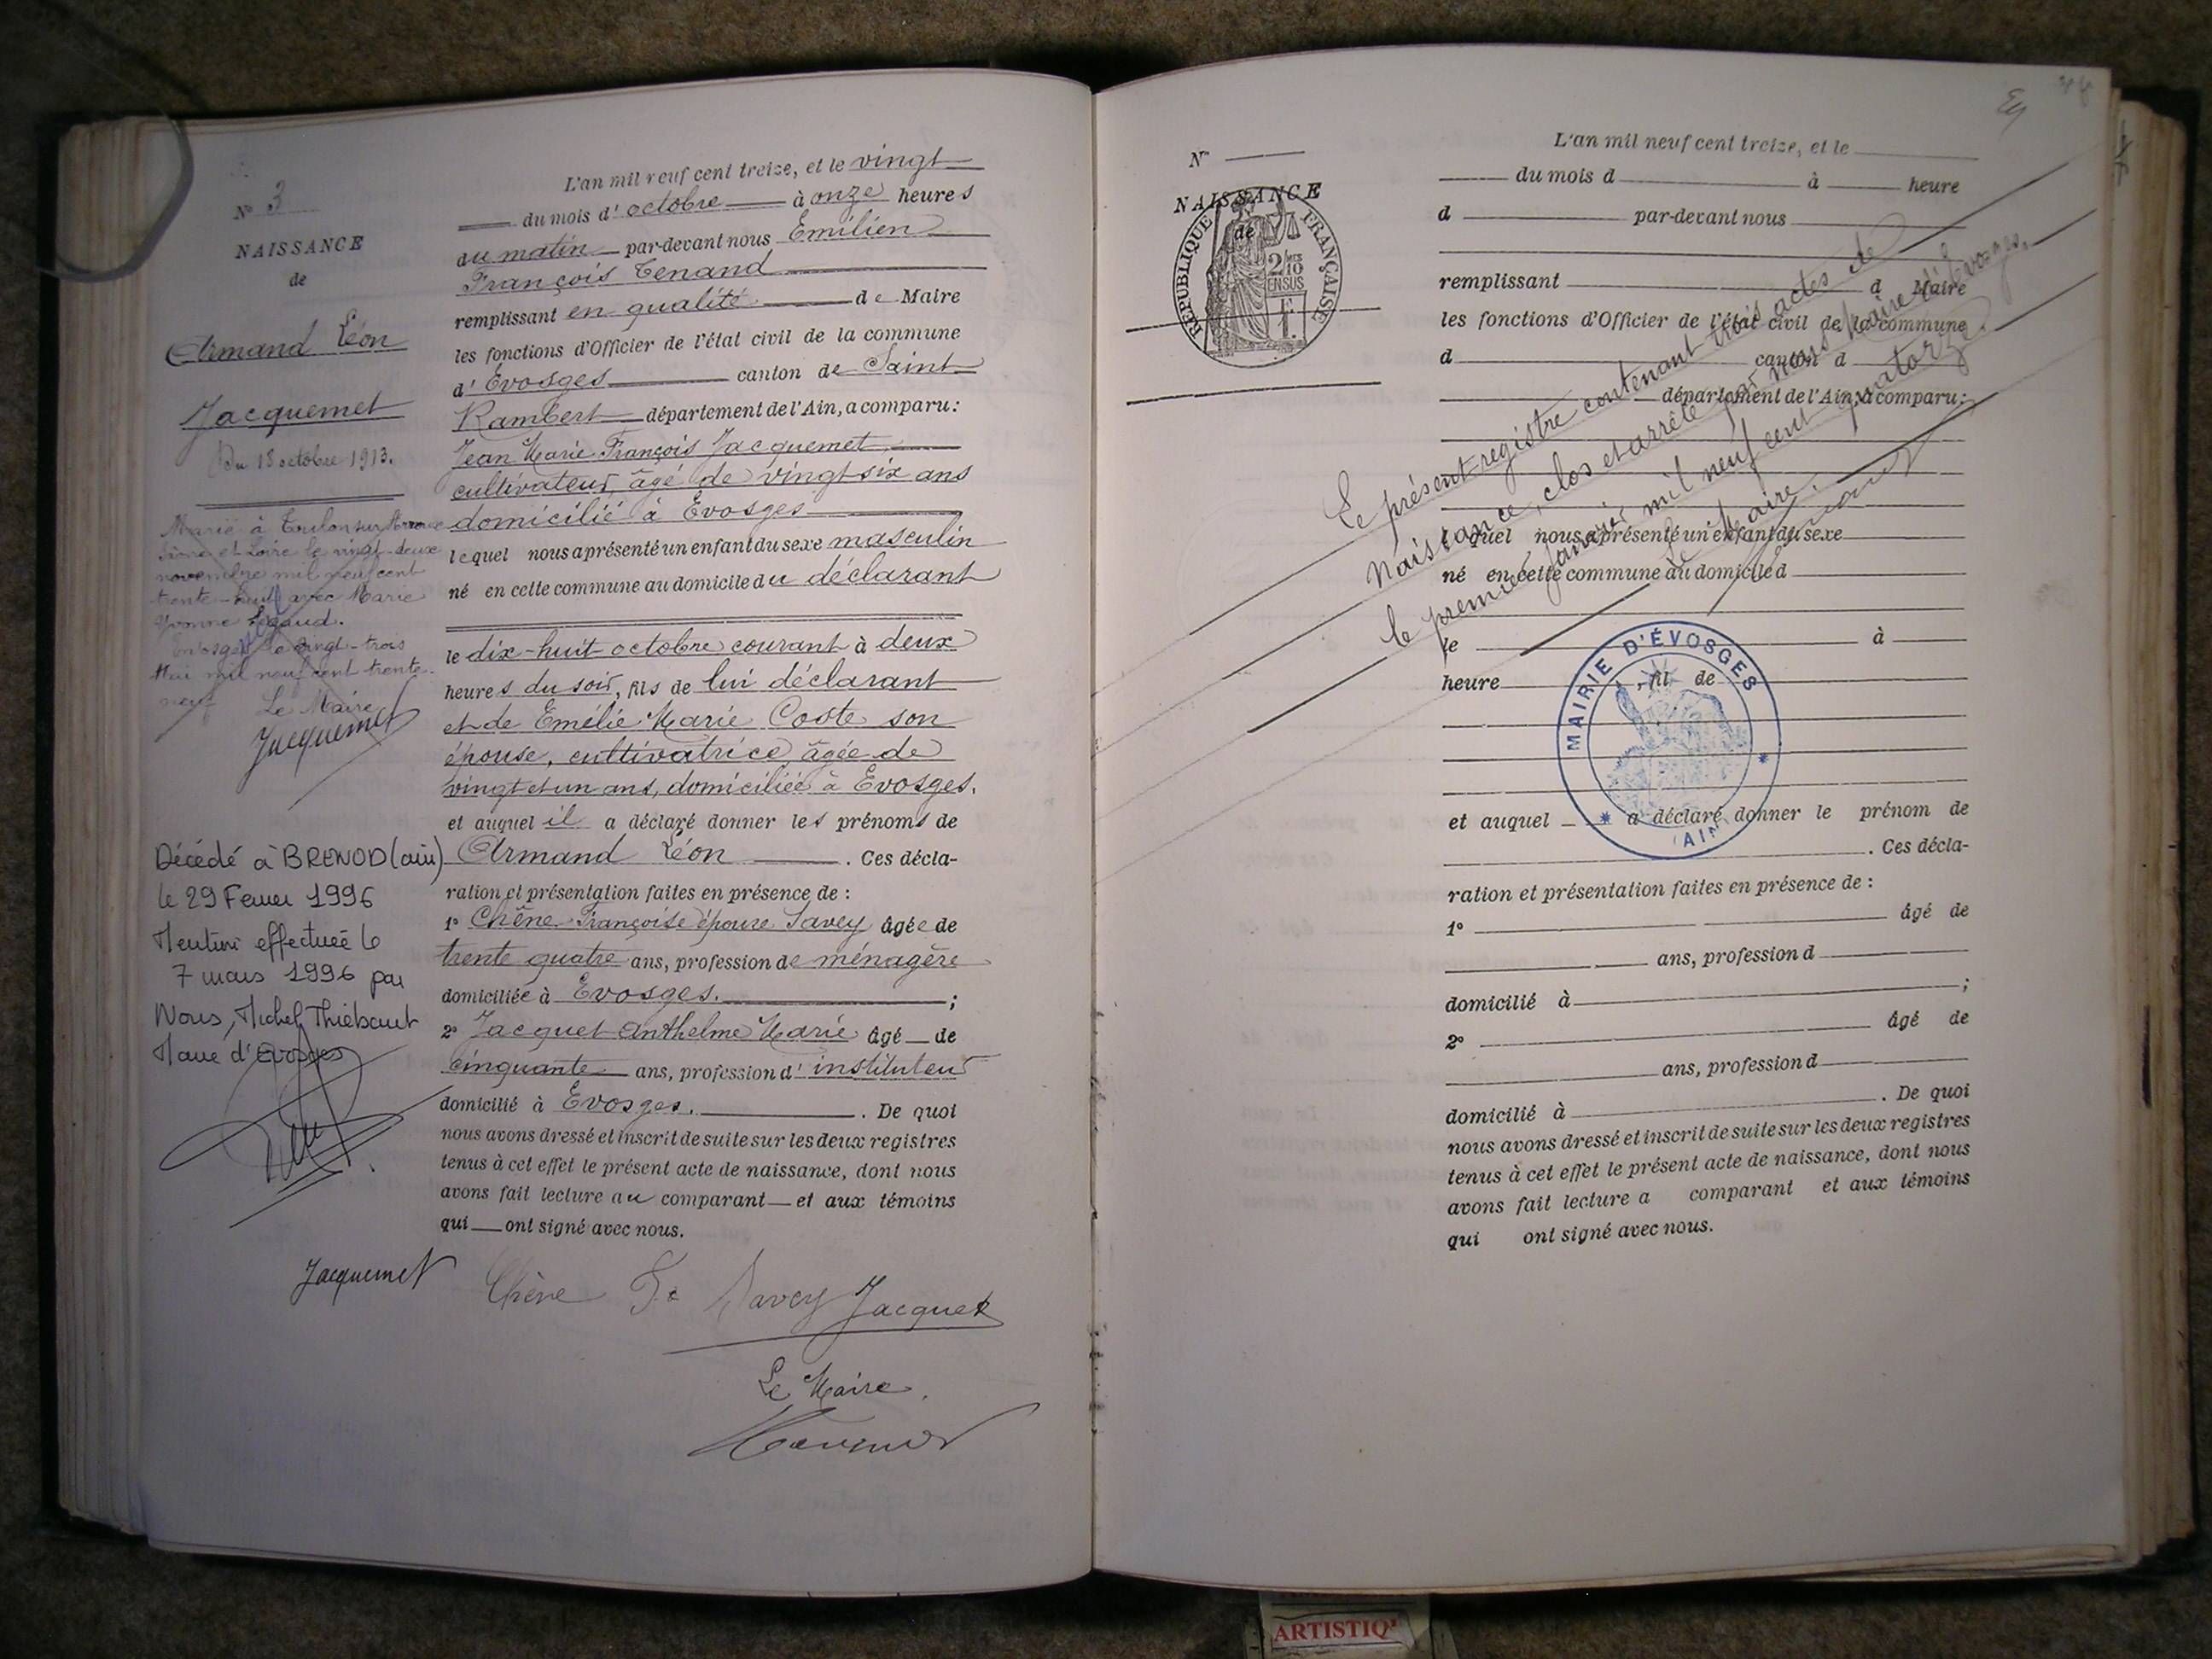 N° 3
NAISSANCE
de
Armand Léon
Jacquemet
Du 18 octobre 1913.
Marié à Toulon sur Arroux
Saône et Loire le vingt-deux
novembre mil neuf cent
trente-huit avec Marie
Yvonne
Evosges le vingt-trois
Mai mil neuf cent trente-
neuf Le Maire
Jacquemet
Décédé à BRENOD (ain)
le 29 Fevrier 1996
Mention effectuée le
7 mars 1996 par
Nous, Michel Thiébaut
Maire d'Evosges
L'an mil neuf cent treize, et le vingt
du mois d'octobre à onze heures
du matin par-devant nous Emilien
François Tenand
remplissant en qualité de Maire
les fonctions d'Officier de l'état civil de la commune
d'Evosges canton de Saint
Rambert département de l'Ain, a comparu:
Jean Marie François Jacquemet,
cultivateur, âgé de vingt six ans
domicilié à Evosges
lequel nous a présenté un enfant du sexe masculin
né en cette commune au domicile du déclarant
le dix-huit octobre courant à deux
heures du soir, fils de lui déclarant
et de Emélie Marie Coste son
épouse, cultivatrice, âgée de
vingt et un ans, domiciliée à Evosges.
et auquel il a déclaré donner les prénoms de
Armand Léon . Ces décla-
ration et présentation faites en présence de :
1° Chêne Françoise épouse Savey âgée de
trente quatre ans, profession de ménagère
domiciliée à Evosges. ;
2° Jacquet Anthelme Marie âgé de
cinquante ans, profession d'instituteur
domicilié à Evosges. . De quoi
nous avons dressé et inscrit de suite sur les deux registres
tenus à cet effet le présent acte de naissance, dont nous
avons fait lecture au comparant et aux témoins
qui ont signé avec nous.
Jacquemet Chêne Fe Savey Jacquet
Le Maire,
N°
NAISSANCE
de
RÉPUBLIQUE FRANÇAISE
2/10 MES
EN SUS
L'an mil neuf cent treize, et le
du mois d à heure
d par-devant nous
remplissant d Maire
les fonctions d'Officier de l'état civil de la commune
d canton d
département de l'Ain, a comparu:
lequel nous a présenté un enfant du sexe
né en cette commune au domicile d
le à
heure , fil de
et auquel a déclaré donner le prénom de
. Ces décla-
ration et présentation faites en présence de :
1° âgé de
ans, profession d
domicilié à ;
2° âgé de
ans, profession d
domicilié à . De quoi
nous avons dressé et inscrit de suite sur les deux registres
tenus à cet effet le présent acte de naissance, dont nous
avons fait lecture a comparant et aux témoins
qui ont signé avec nous.
Le présent registre contenant trois actes de
Naissance, clos et arrêté par nous Maire d'Evosges,
le premier janvier mil neuf cent quatorze
Le Maire.
MAIRIE D'ÉVOSGES
(AIN)
ARTISTIQ